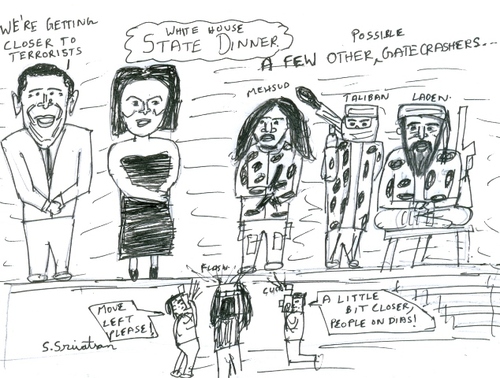 WE'RE GETTING
CLOSER TO
TERRORISTS
WHITE HOUSE
STATE DINNER
POSSIBLE
A FEW OTHER GATECRASHERS...
MEHSUD
TALIBAN
LADEN.
FLASH
CLICK
MOVE
LEFT
PLEASE!
A LITTLE
BIT CLOSER,
PEOPLE ON DIAS!
S. Srivatsan